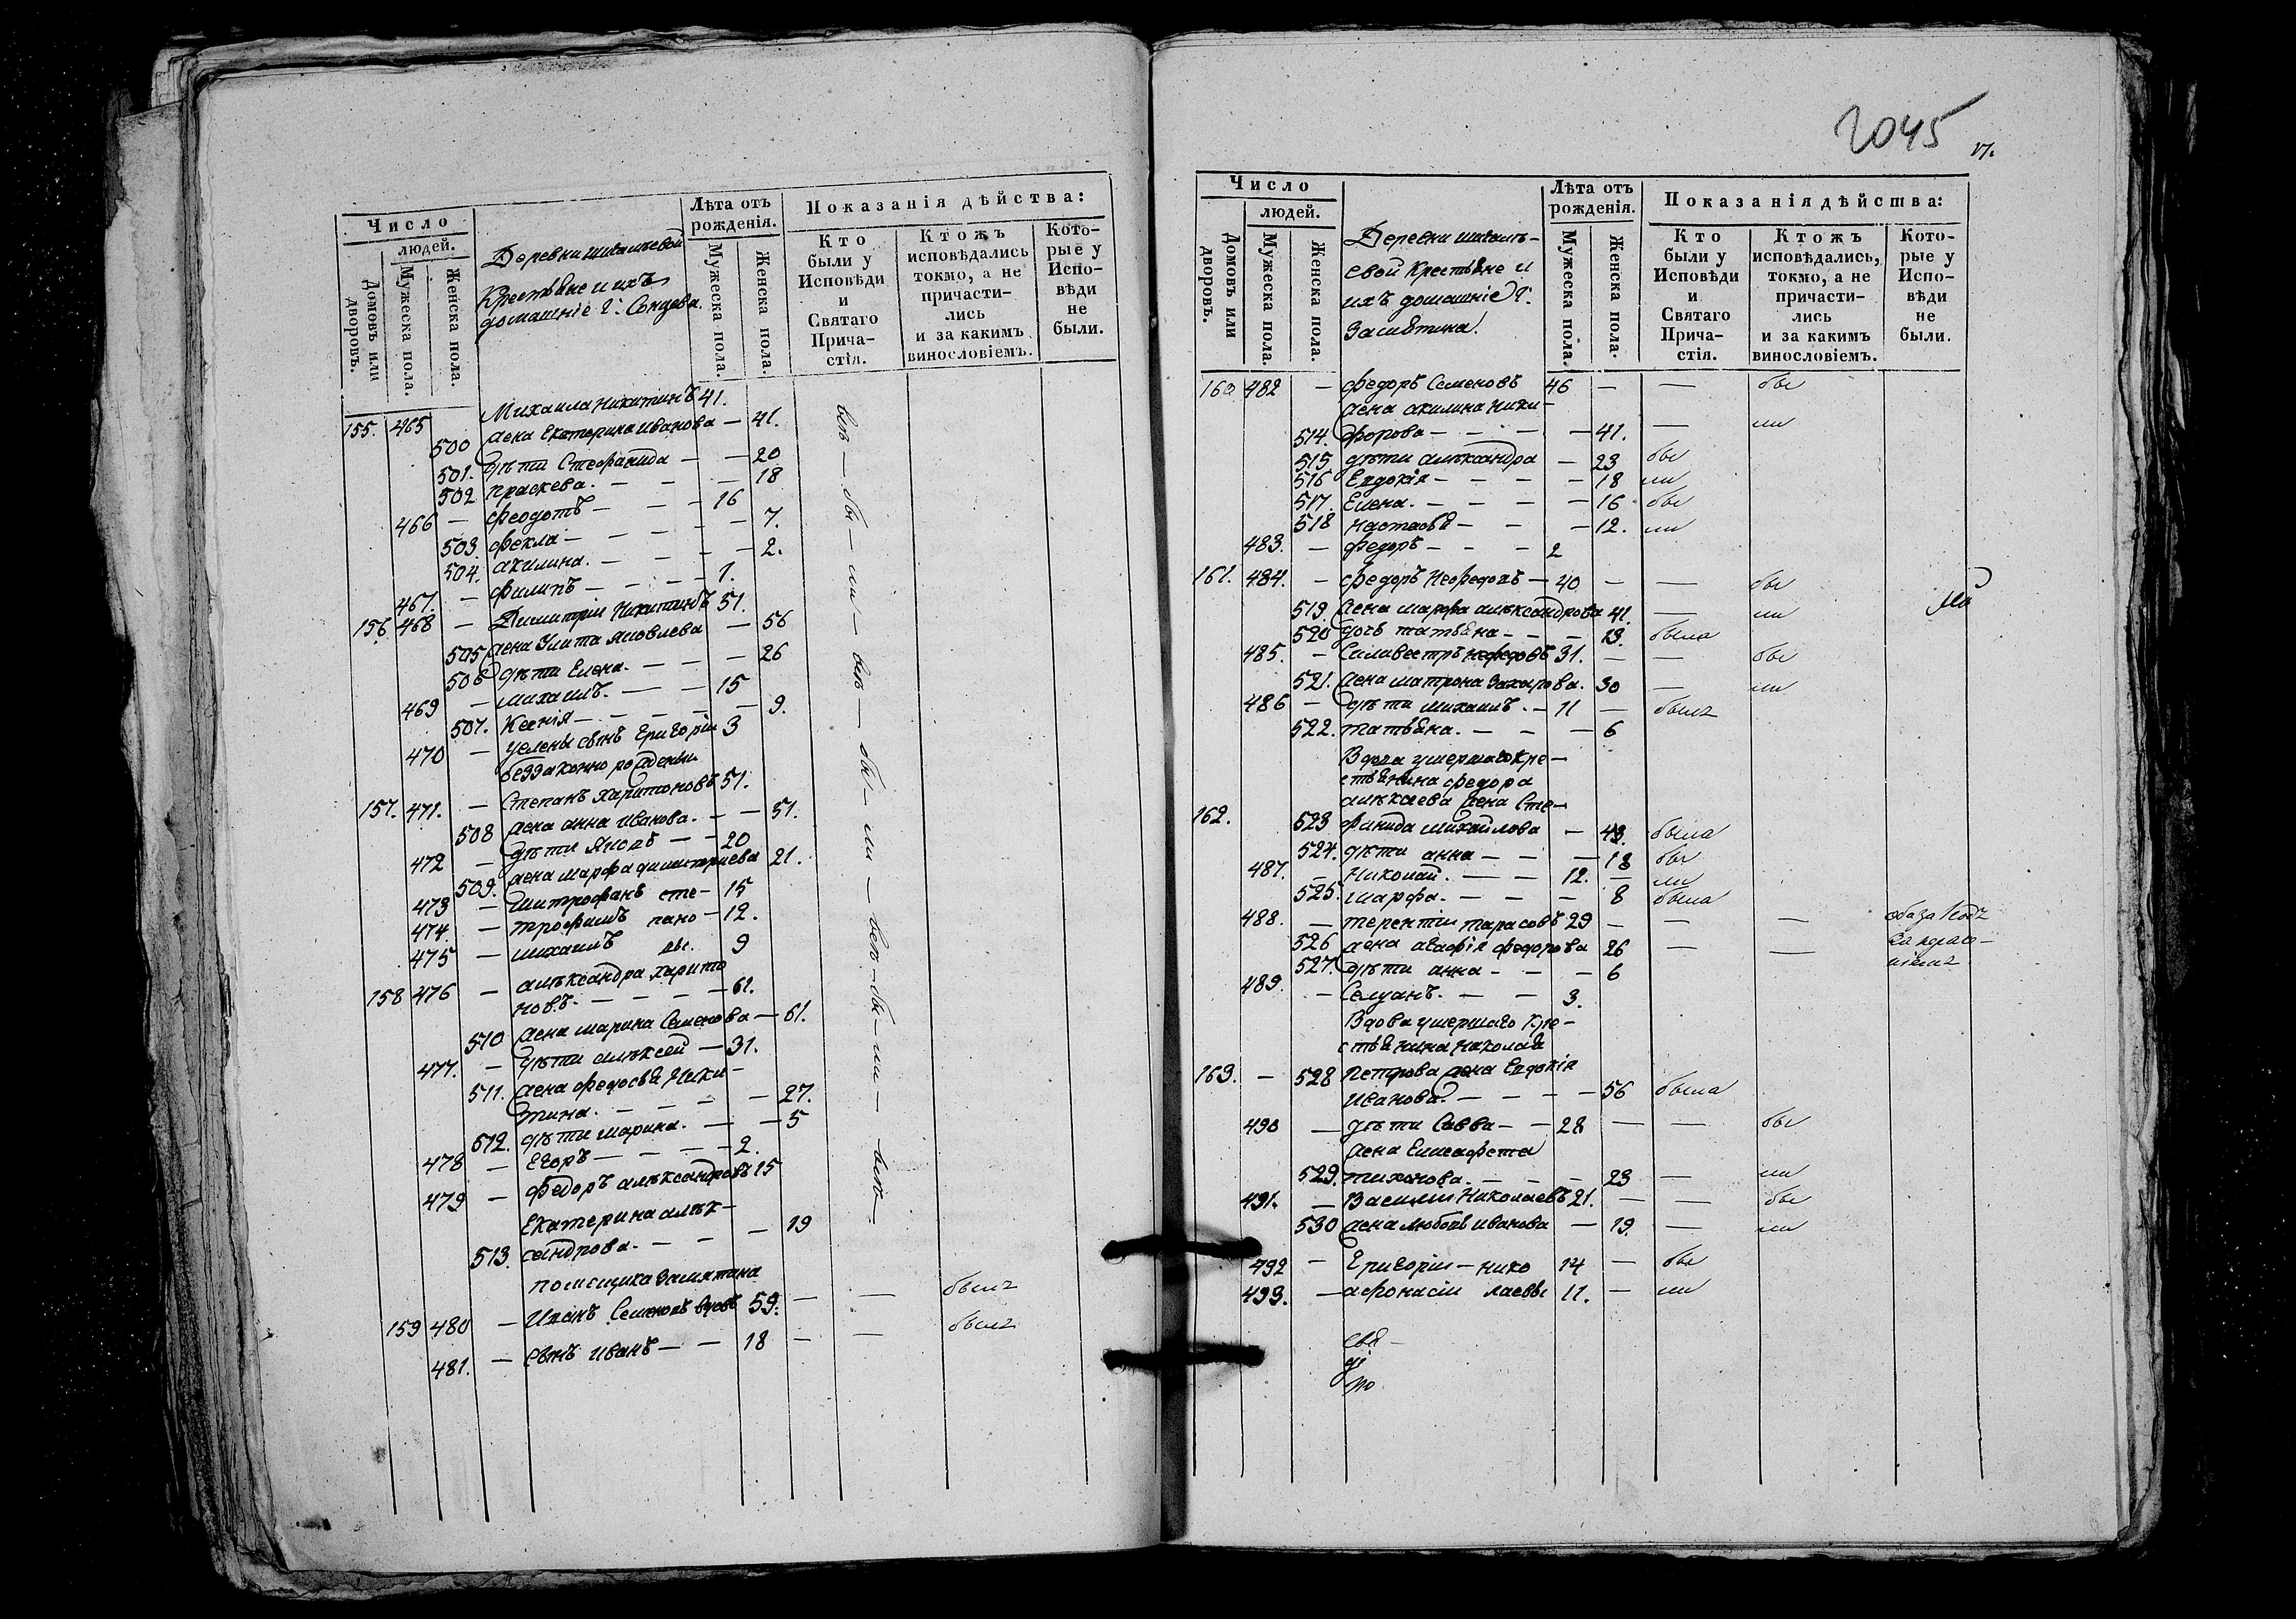 Число
людей.
Домовъ или дворовъ.
Мужеска пола.
Женска пола.
Деревни
Крестьяне и ихъ
домашніе г. Сонцева.
Лѣта отъ рожденія.
Мужеска пола.
Женска пола.
Показанія дѣйства:
Кто были у Исповѣди и Святаго Прича-стія.
Ктожъ исповѣдались токмо, а не причасти-лись и за какимъ винословіемъ.
Кото-рые у Испо-вѣди не были.
155. 465 Михаила Никитинъ 41.
500 жена Екатерина Иванова — 41.
501. дѣти Стефанида — — 20
502 Праскева. — — — 18
466 — Феодотъ — — — 16
503. Фекла — — — — 7.
504. Акилина. — — — — 2.
467. — Филипъ — — — — 1.
156 468 — Димитріи Никитинъ 51.
505 жена Улита Яковлева — 56
506 дѣти Елена. — — — 26
469 — Михаилъ. — — 15
507. Ксенія — — — — 9.
470 — у Елены сынъ Григоріи 3
беззаконно рожденъи
157. 471. — Степанъ Харитоновъ 51.
508 жена Анна Иванова. — — 51.
472 — дѣти Яковъ — — 20
509. жена Марфа Димитриева 21.
473 — Митрофанъ сте — 15
474. — Трофимъ пано — 12.
475 — Михаилъ вы. 9
158 476 — Алѣксандра Харито
новъ. — — — — 61.
510 жена Марина Семенова — 61.
477. — дѣти Алѣксеи — 31.
511. жена Федосья Ники —
тина. — — — — 27.
512. дѣти Марина. — — 5
478 — Егоръ — — — — 2.
479 — Федоръ Алѣксандровъ 15
Екатерина Алѣк —
513. сандрова. — — — 19
помещика Замятина
159 480 — Иванъ Семеновъ вдовъ 59. — — былъ
481. — сынъ Иванъ — — 18 — — былъ
всѣ — бы — ли — всѣ — бы — ли — всѣ — бы — ли — всѣ —
2045
17.
Число
людей.
Домовъ или дворовъ.
Мужеска пола.
Женска пола.
Деревни
евой Крестьяне и
ихъ домашніе г.
Замятина.
Лѣта отъ рожденія.
Мужеска пола.
Женска пола.
Показанія дѣйства:
Кто были у Исповѣди и Святаго Прича-стія.
Ктожъ исповѣдались, токмо, а не причасти-лись и за какимъ винословіемъ.
Кото-рые у Испо-вѣди не были.
160 482 — Федоръ Семеновъ 46 — — бы
жена Акилина Ники —
514. форова — — — — 41. — ли
515 дѣти Алѣксандра — 23 бы
516 Евдокія — — — — 18 ли
517. Елена. — — — — 16 бы
518 Настасья — — — 12. ли
483. — Федоръ — — — 2
161. 484. — Федоръ Нефедовъ — 40 — — бы
519. жена Марфа Алѣксандрова 41. — ли
520 дочь Татьяна — — — 13. была
485. — Силивестръ Нефедовъ 31. — — бы
521. жена Матрона Захарова. 30 — ли
486 — дѣти Михаилъ. — 11 — былъ
522. Татьяна. — — — 6
Вдова умершаго Кре —
стьянина Федора
Алѣксеева жена Сте —
162. 523 фанида Михайлова — 43. была
524. дѣти Анна — — — 18 бы
487. — Николай. — — 12. — ли
525. Марфа. — — — 8 была
488. — Терентіи Тарасовъ 29 — — —
526 жена Агафія Федорова 26 — —
527. дѣти Анна — — — 6
489. — Селуанъ. — — 3.
Вдова умершаго Кре —
стьянина Николая
163. — 528 Петрова жена Евдокія
Иванова. — — — — 56 была
490 — дѣти Савва — — 28 — — бы
жена Елисафета
529. Тихонова. — — — 23 — ли
491. — Василіи Николаевъ 21. — — бы
530 жена Любовь Иванова — 19. — ли
492 — Григоріи — нико 14 — бы
493. — Афонасіи лаевы 11. — ли